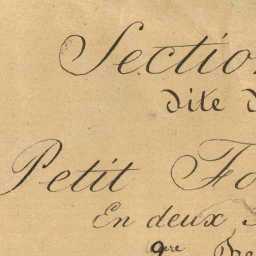 Section
dite
Petit Fo
En deux